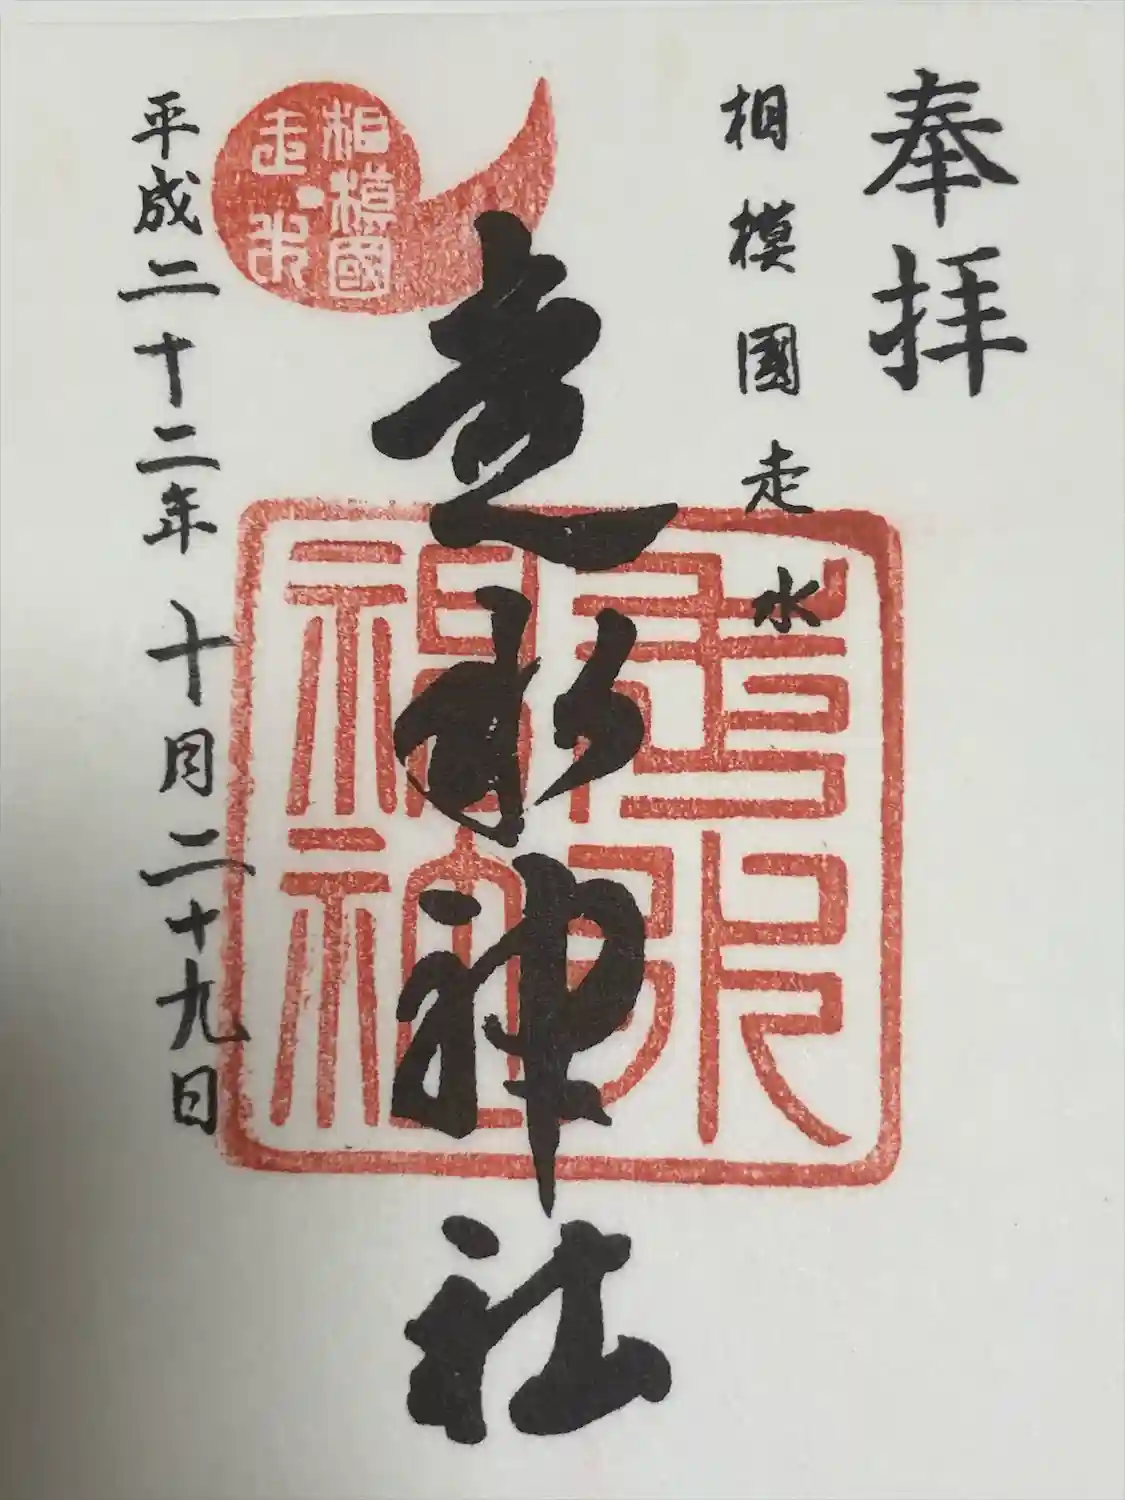 奉拝
相模国走水
走水神社
相模國
走水
平成二十二年十月二十九日